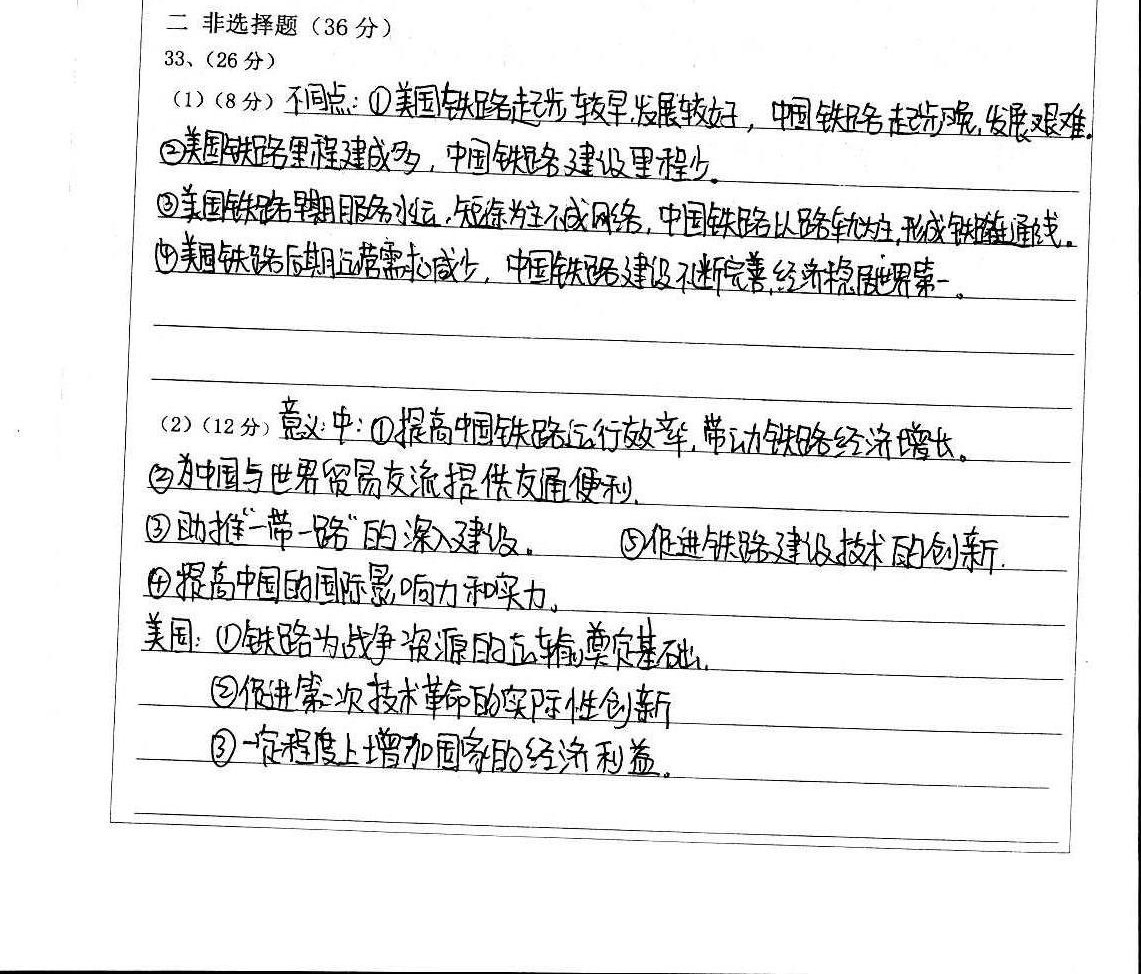 二 非选择题（36 分）
33、（26 分）
（1）（8 分）不同点：①美国铁路起步较早，发展较好，中国铁路起步晚，发展艰难。
②美国铁路里程建成多，中国铁路建设里程少。
③美国铁路早期服务水运，短途为主不成网络，中国铁路以路轨为主，形成铁路通线。
④美国铁路后期运营需求减少，中国铁路建设不断完善，经济稳居世界第一。
（2）（12 分）意义：中：①提高中国铁路运行效率，带动铁路经济增长。
②为中国与世界贸易交流提供交通便利.
③助推“一带一路”的深入建设。 ⑤促进铁路建设技术的创新.
④提高中国的国际影响力和实力。
美国：①铁路为战争资源的运输奠定基础.
②促进第二次技术革命的实际性创新
③一定程度上增加国家的经济利益。